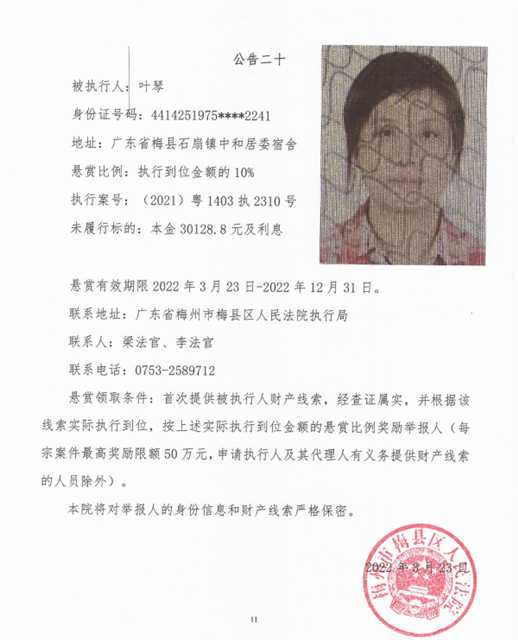 公告二十
被执行人：叶琴
身份证号码：4414251975****2241
地址：广东省梅县石扇镇中和居委宿舍
悬赏比例：执行到位金额的 10%
执行案号：（2021）粤 1403 执 2310 号
未履行标的：本金 30128.8 元及利息
悬赏有效期限 2022 年 3 月 23 日-2022 年 12 月 31 日。
联系地址：广东省梅州市梅县区人民法院执行局
联系人：梁法官、李法官
联系电话：0753-2589712
悬赏领取条件：首次提供被执行人财产线索，经查证属实，并根据该
线索实际执行到位，按上述实际执行到位金额的悬赏比例奖励举报人（每
宗案件最高奖励限额 50 万元，申请执行人及其代理人有义务提供财产线索
的人员除外）。
本院将对举报人的身份信息和财产线索严格保密。
梅州市梅县区人民法院
2022 年 3 月 23 日
11